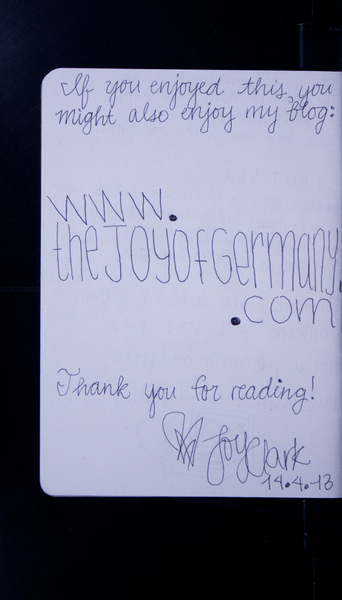 If you enjoyed this, you
might also enjoy my blog:
www.
theJoyofGermany
.com
Thank you for reading!
Joy Clark
14.4.13